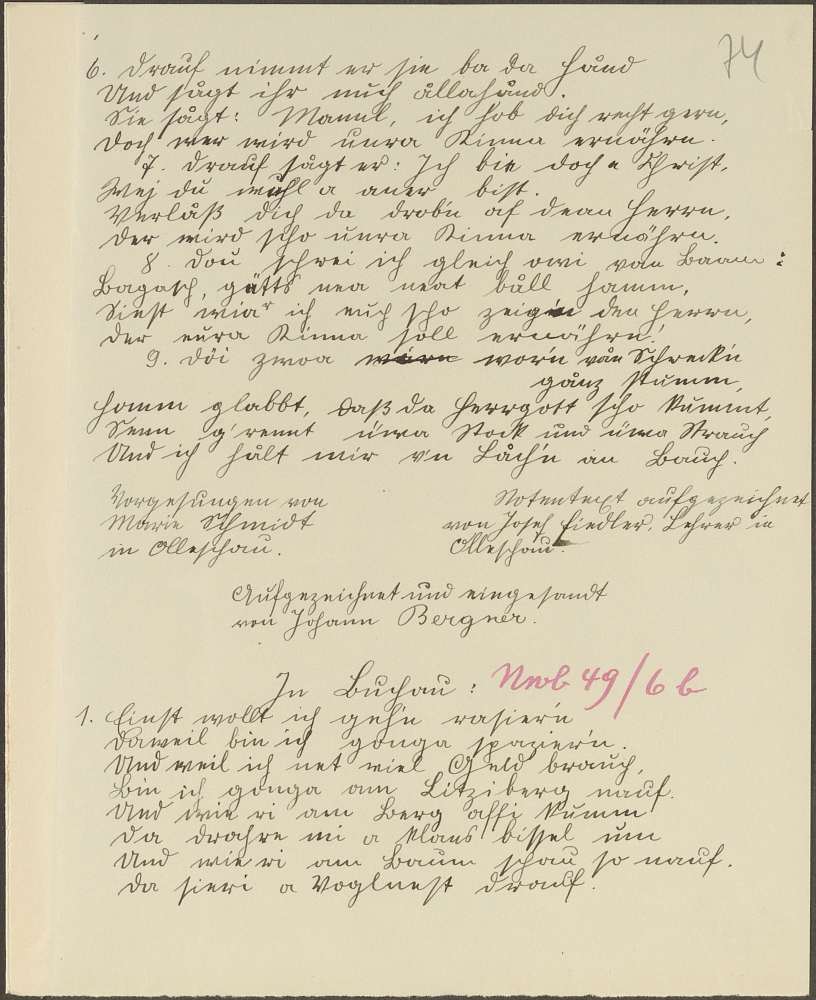 74
6. Drauf nimmt er sie ba da Hånd
Und sågt ihr nuch ållahånd.
Sie sågt: Mannl, ich hob dich recht gern,
Doch wer wird unra Kinna ernährn.
7. Drauf sågt er: Ich bin doch a Christ,
Wej du wuhl a aner bist.
Verlåß dich da drob'n af dean Herrn,
Der wird scho unra Kinna ernährn.
8. Dou schrei ich gleich owi van Baam:
Bagasch, gätts nea neat båll hamm,
Siest wiar ich euch scho zeig'n den Herrn,
Der eura Kinna soll ernährn!
9. Döi zwoa worn van Schreck'n
gånz stumm,
Homm glabbt, daß da Herrgott scho kummt,
Senn g'rennt üwa Stock und üwa Strauch
Und ich hålt mir v'n Låch'n an Bauch.
Vorgesungen von
Marie Schmidt
in Olleschau.
Notentext aufgezeichnet
von Josef Fiedler, Lehrer in
Olleschau.
Aufgezeichnet und eingesandt
von Johann Bergner.
In Buchau: Nwb 49/6 b
1. Einst wollt ich geh'n rasier'n
Daweil bin ich gonga spazier'n.
Und weil ich net viel Geld brauch,
Bin ich gonga am Litziberg nauf.
Und wie ri am Berg affi kumm
Da drahre mi a klans bissel um
Und wie ri am Baum schau so nauf.
Da sieri a Voglnest drauf.